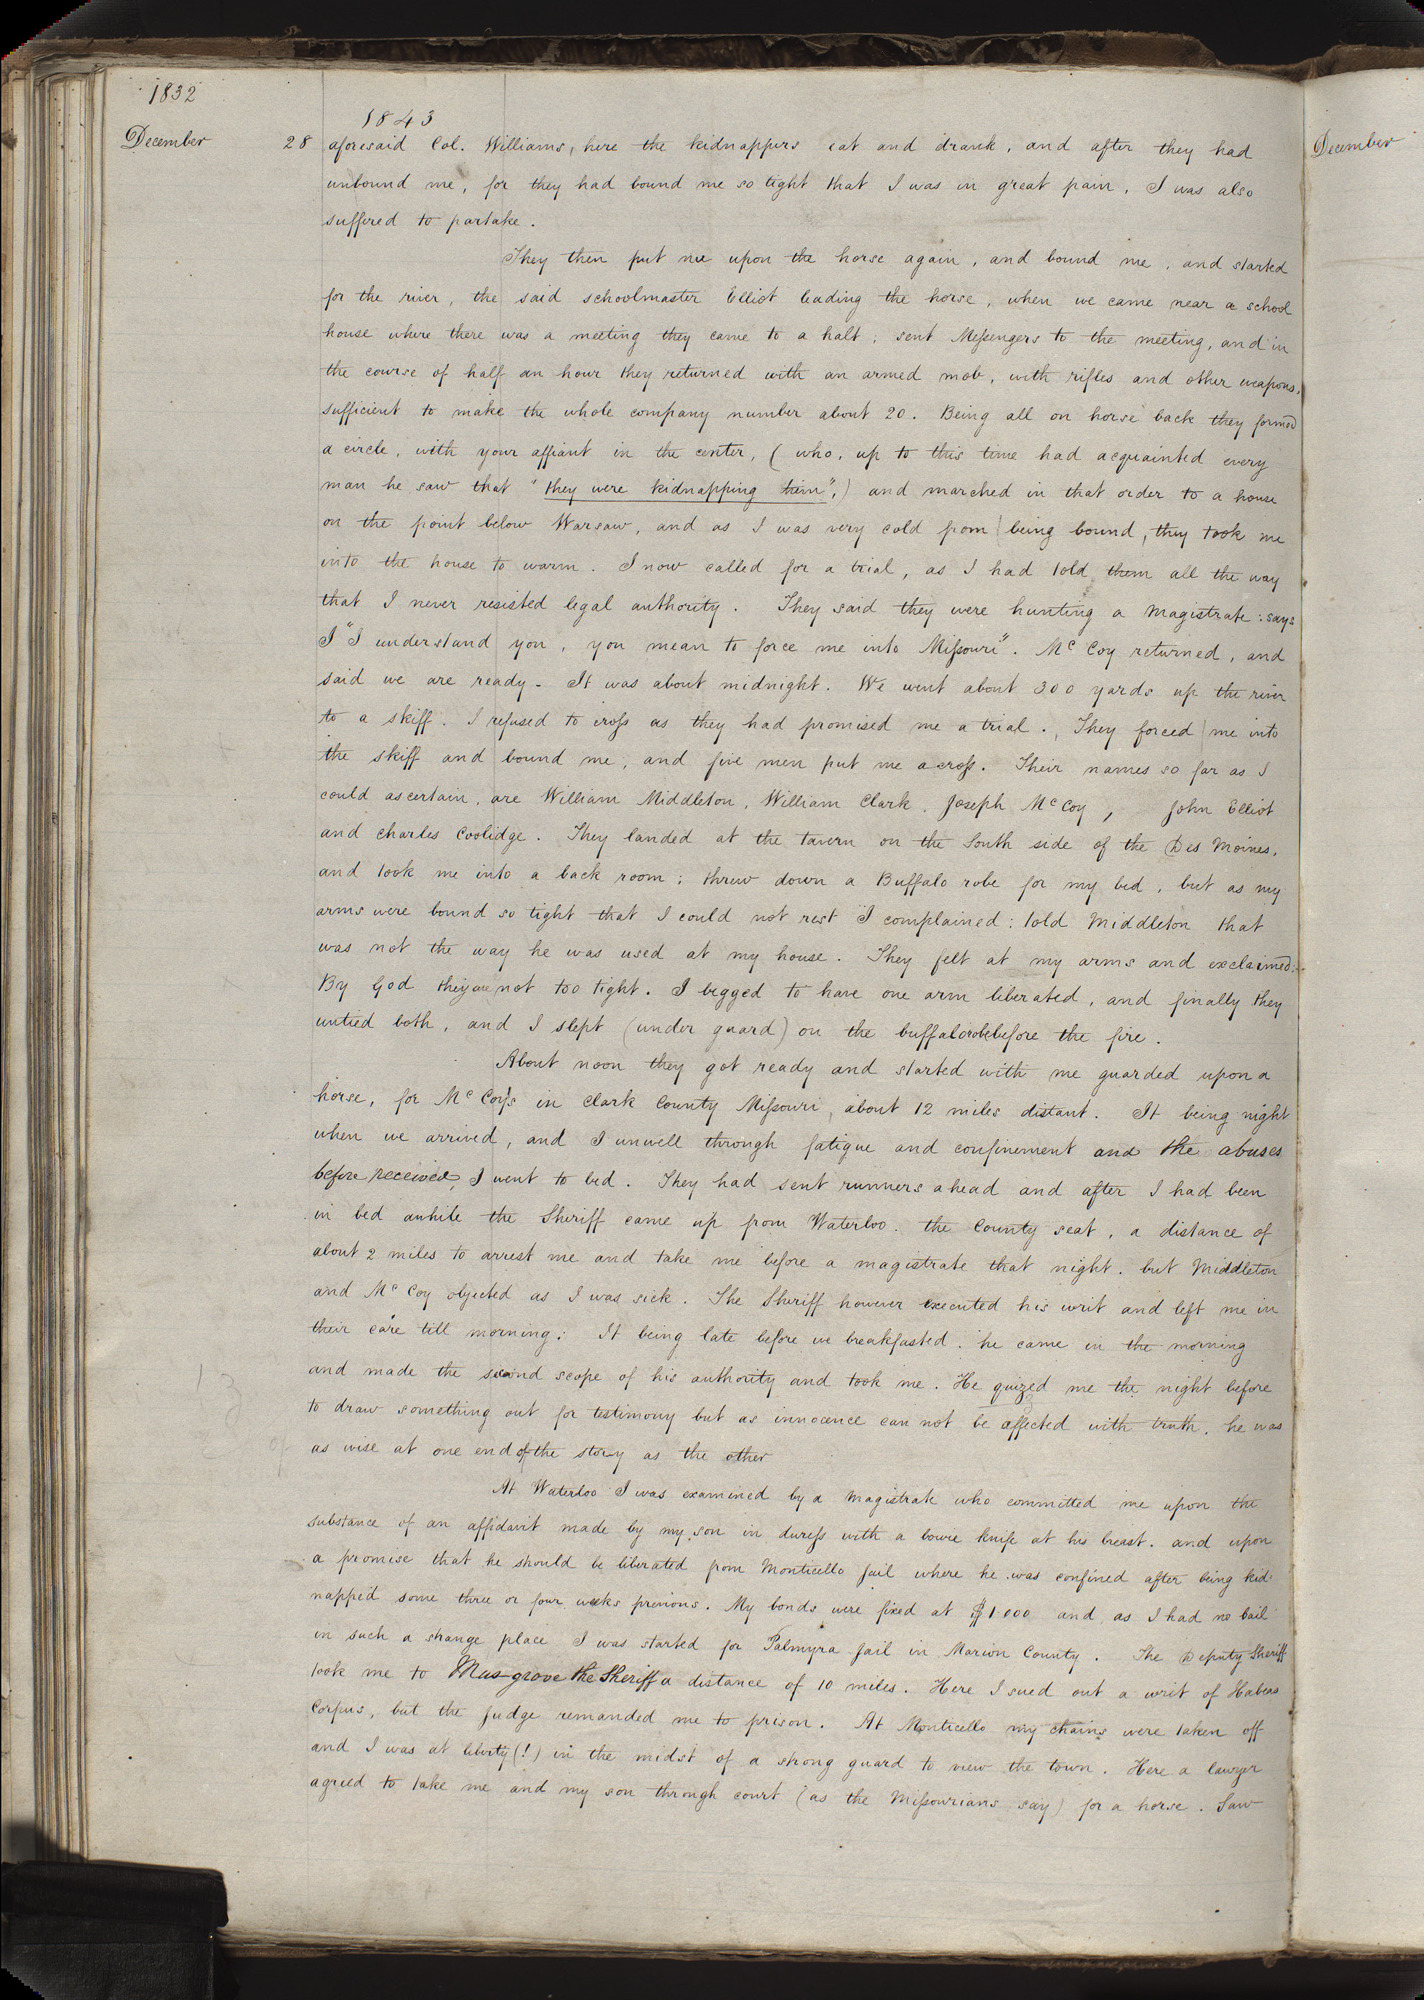 1832
1843
December 28 aforesaid Col. Williams, here the kidnappers eat and drank, and after they had
unbound me, for they had bound me so tight that I was in great pain, I was also
suffered to partake.
They then put me upon the horse again, and bound me, and started
for the river, the said schoolmaster Elliot leading the horse, when we came near a school
house where there was a meeting they came to a halt; sent Messengers to the meeting, and in
the course of half an hour they returned with an armed mob, with rifles and other weapons,
sufficient to make the whole company number about 20. Being all on horse back they formed
a circle, with your affiant in the center, (who, up to this time had acquainted every
man he saw that "they were kidnapping him",) and marched in that order to a house
on the point below Warsaw, and as I was very cold from being bound, they took me
into the house to warm. I now called for a trial, as I had told them all the way
that I never resisted legal authority. They said they were hunting a Magistrate: says
I "I understand you, you mean to force me into Missouri". McCoy returned, and
said we are ready. It was about midnight. We went about 300 yards up the river
to a skiff. I refused to cross as they had promised me a trial. They forced me into
the skiff and bound me, and five men put me across. Their names so far as I
could ascertain, are William Middleton, William Clark, Joseph McCoy, John Elliot
and Charles Coolidge. They landed at the tavern on the South side of the Des Moines,
and took me into a back room; threw down a Buffalo robe for my bed, but as my
arms were bound so tight that I could not rest I complained; told Middleton that
was not the way he was used at my house. They felt at my arms and exclaimed:
By God they are not too tight. I begged to have one arm liberated, and finally they
untied both, and I slept (under guard) on the buffalo robe before the fire.
About noon they got ready and started with me guarded upon a
horse, for McCoy's in Clark County Missouri, about 12 miles distant. It being night
when we arrived, and I unwell through fatigue and confinement and the abuses
before received, I went to bed. They had sent runners ahead and after I had been
in bed awhile the Sheriff came up from Waterloo, the County seat, a distance of
about 2 miles to arrest me and take me before a magistrate that night, but Middleton
and McCoy objected as I was sick. The Sheriff however executed his writ and left me in
their care till morning: It being late before we breakfasted, he came in the morning
and made the second scope of his authority and took me. He quized me the night before
to draw something out for testimony but as innocence can not be affected with truth, he was
as wise at one end of the story as the other
At Waterloo I was examined by a magistrate who committed me upon the
substance of an affidavit made by my son in duress with a bowie knife at his breast, and upon
a promise that he should be liberated from Monticello jail where he was confined after being kid
napped some three or four weeks previous. My bonds were fixed at $1000 and as I had no bail
in such a strange place I was started for Palmyra jail in Marion County. The Deputy Sheriff
took me to Musgrove the Sheriff a distance of 10 miles. Here I sued out a writ of Habeas
Corpus, but the judge remanded me to prison. At Monticello my chains were taken off
and I was at liberty (!) in the midst of a strong guard to view the town. Here a lawyer
agreed to take me and my son through court (as the Missourians say) for a horse. Saw
December